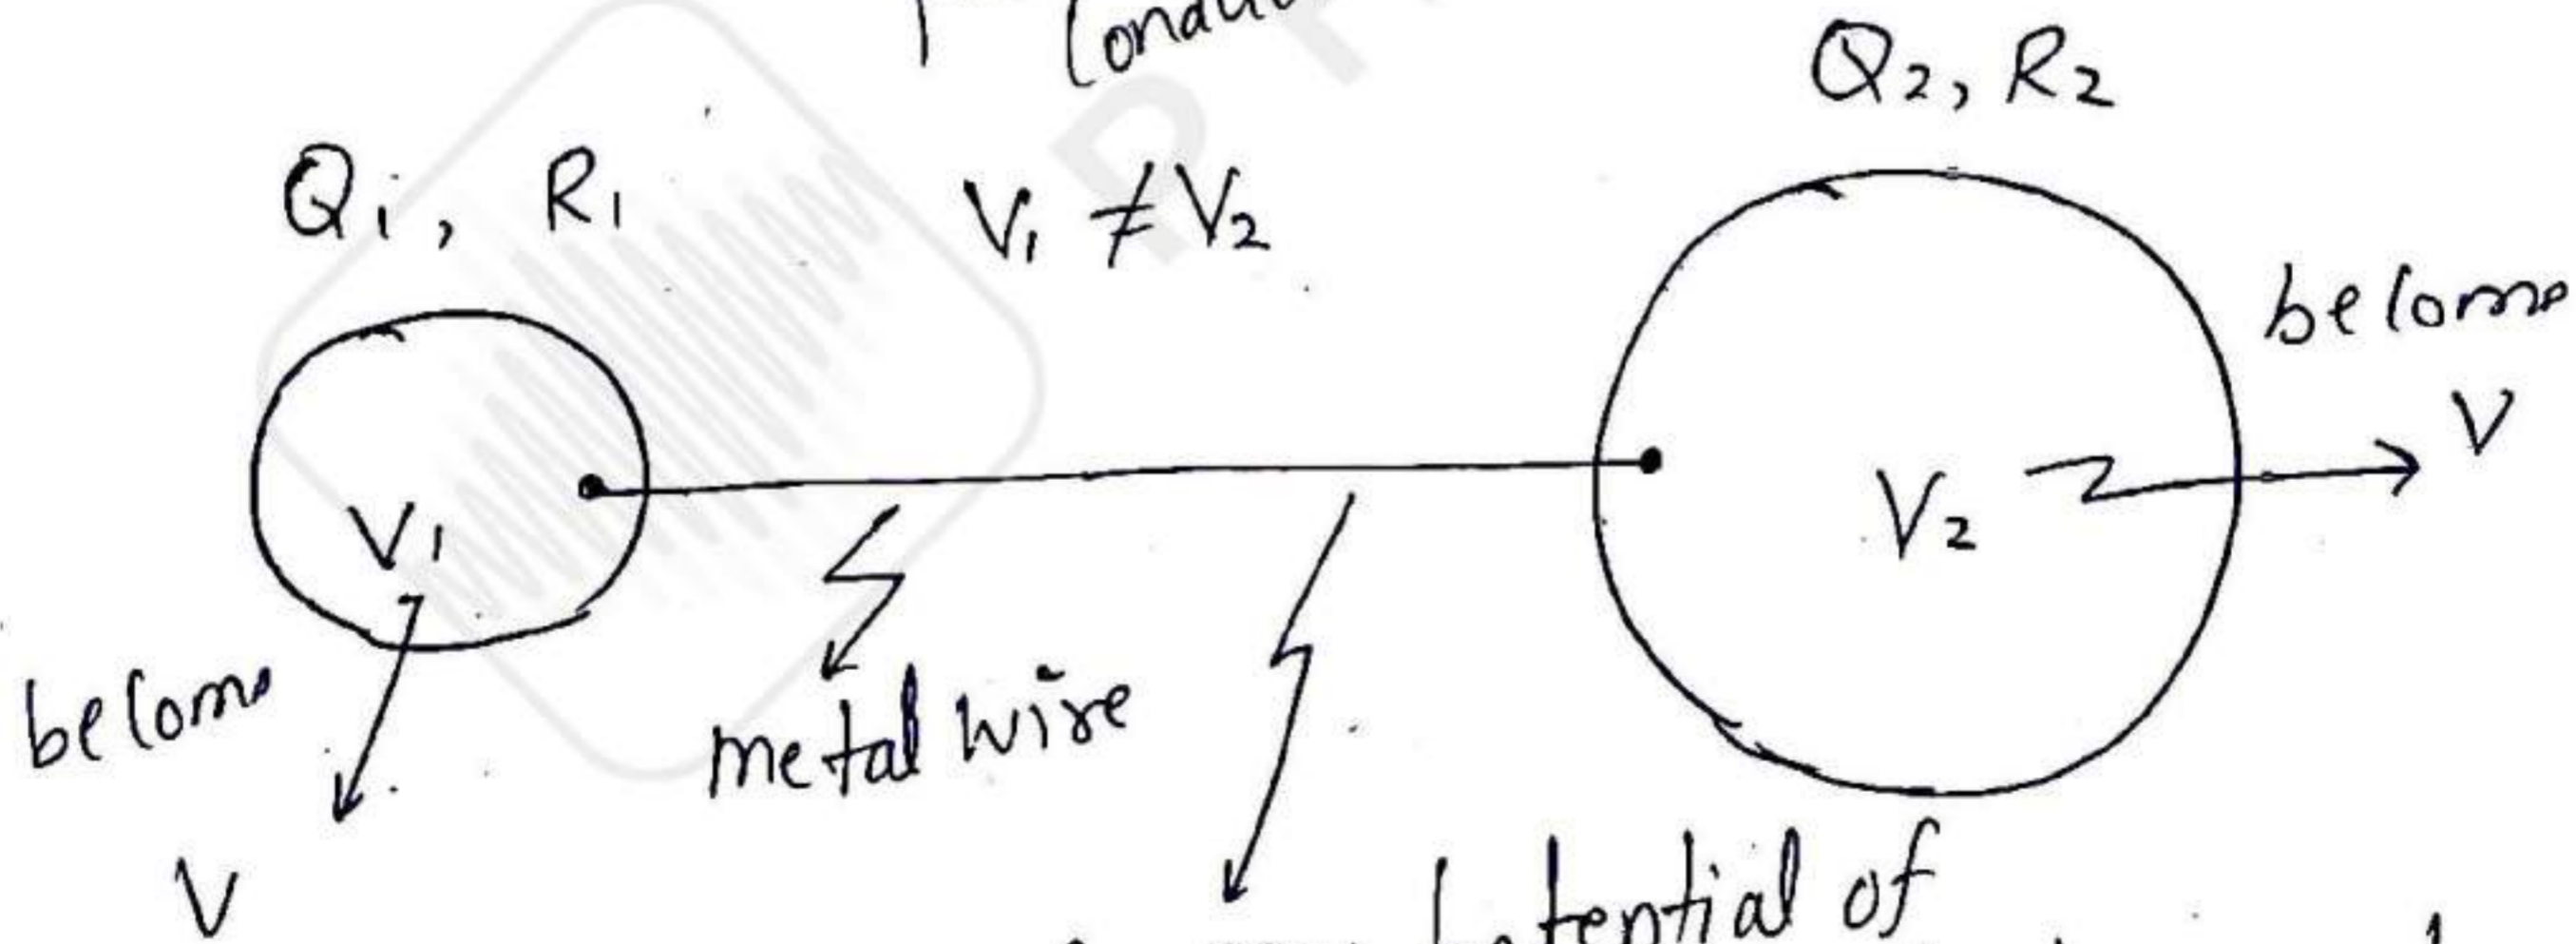 Q2, R2
Q1, R1
V1 ≠ V2
becomes
V
V1
V2
becomes
metal wire
V
potential of